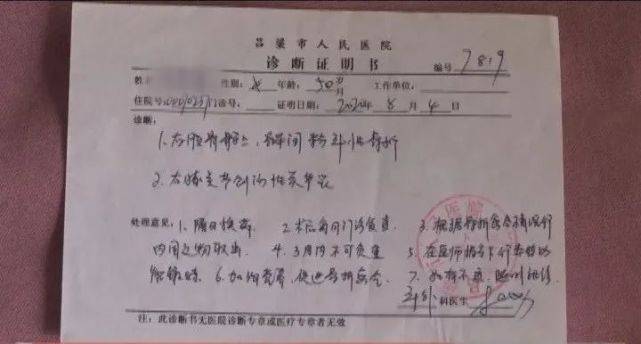 吕梁市人民医院
诊断证明书
编号 7819
姓名 性别: 女 年龄: 50 岁 月 工作单位:
住院号: 门诊号: 证明日期: 2020年 8 月 4 日
诊断:
1.右胫骨 粉碎性骨折
2.右膝关节创伤性关节炎
处理意见: 1.隔日换药 2.术后每月门诊复查 3.根据骨折愈合情况行
内固定物取出 4.3月内不可负重 5.在医师指导下行
锻炼 6.加强营养,促进骨折愈合 7.如有不适 随诊
科医生
注:此诊断书无医院诊断专章或医疗专章者无效